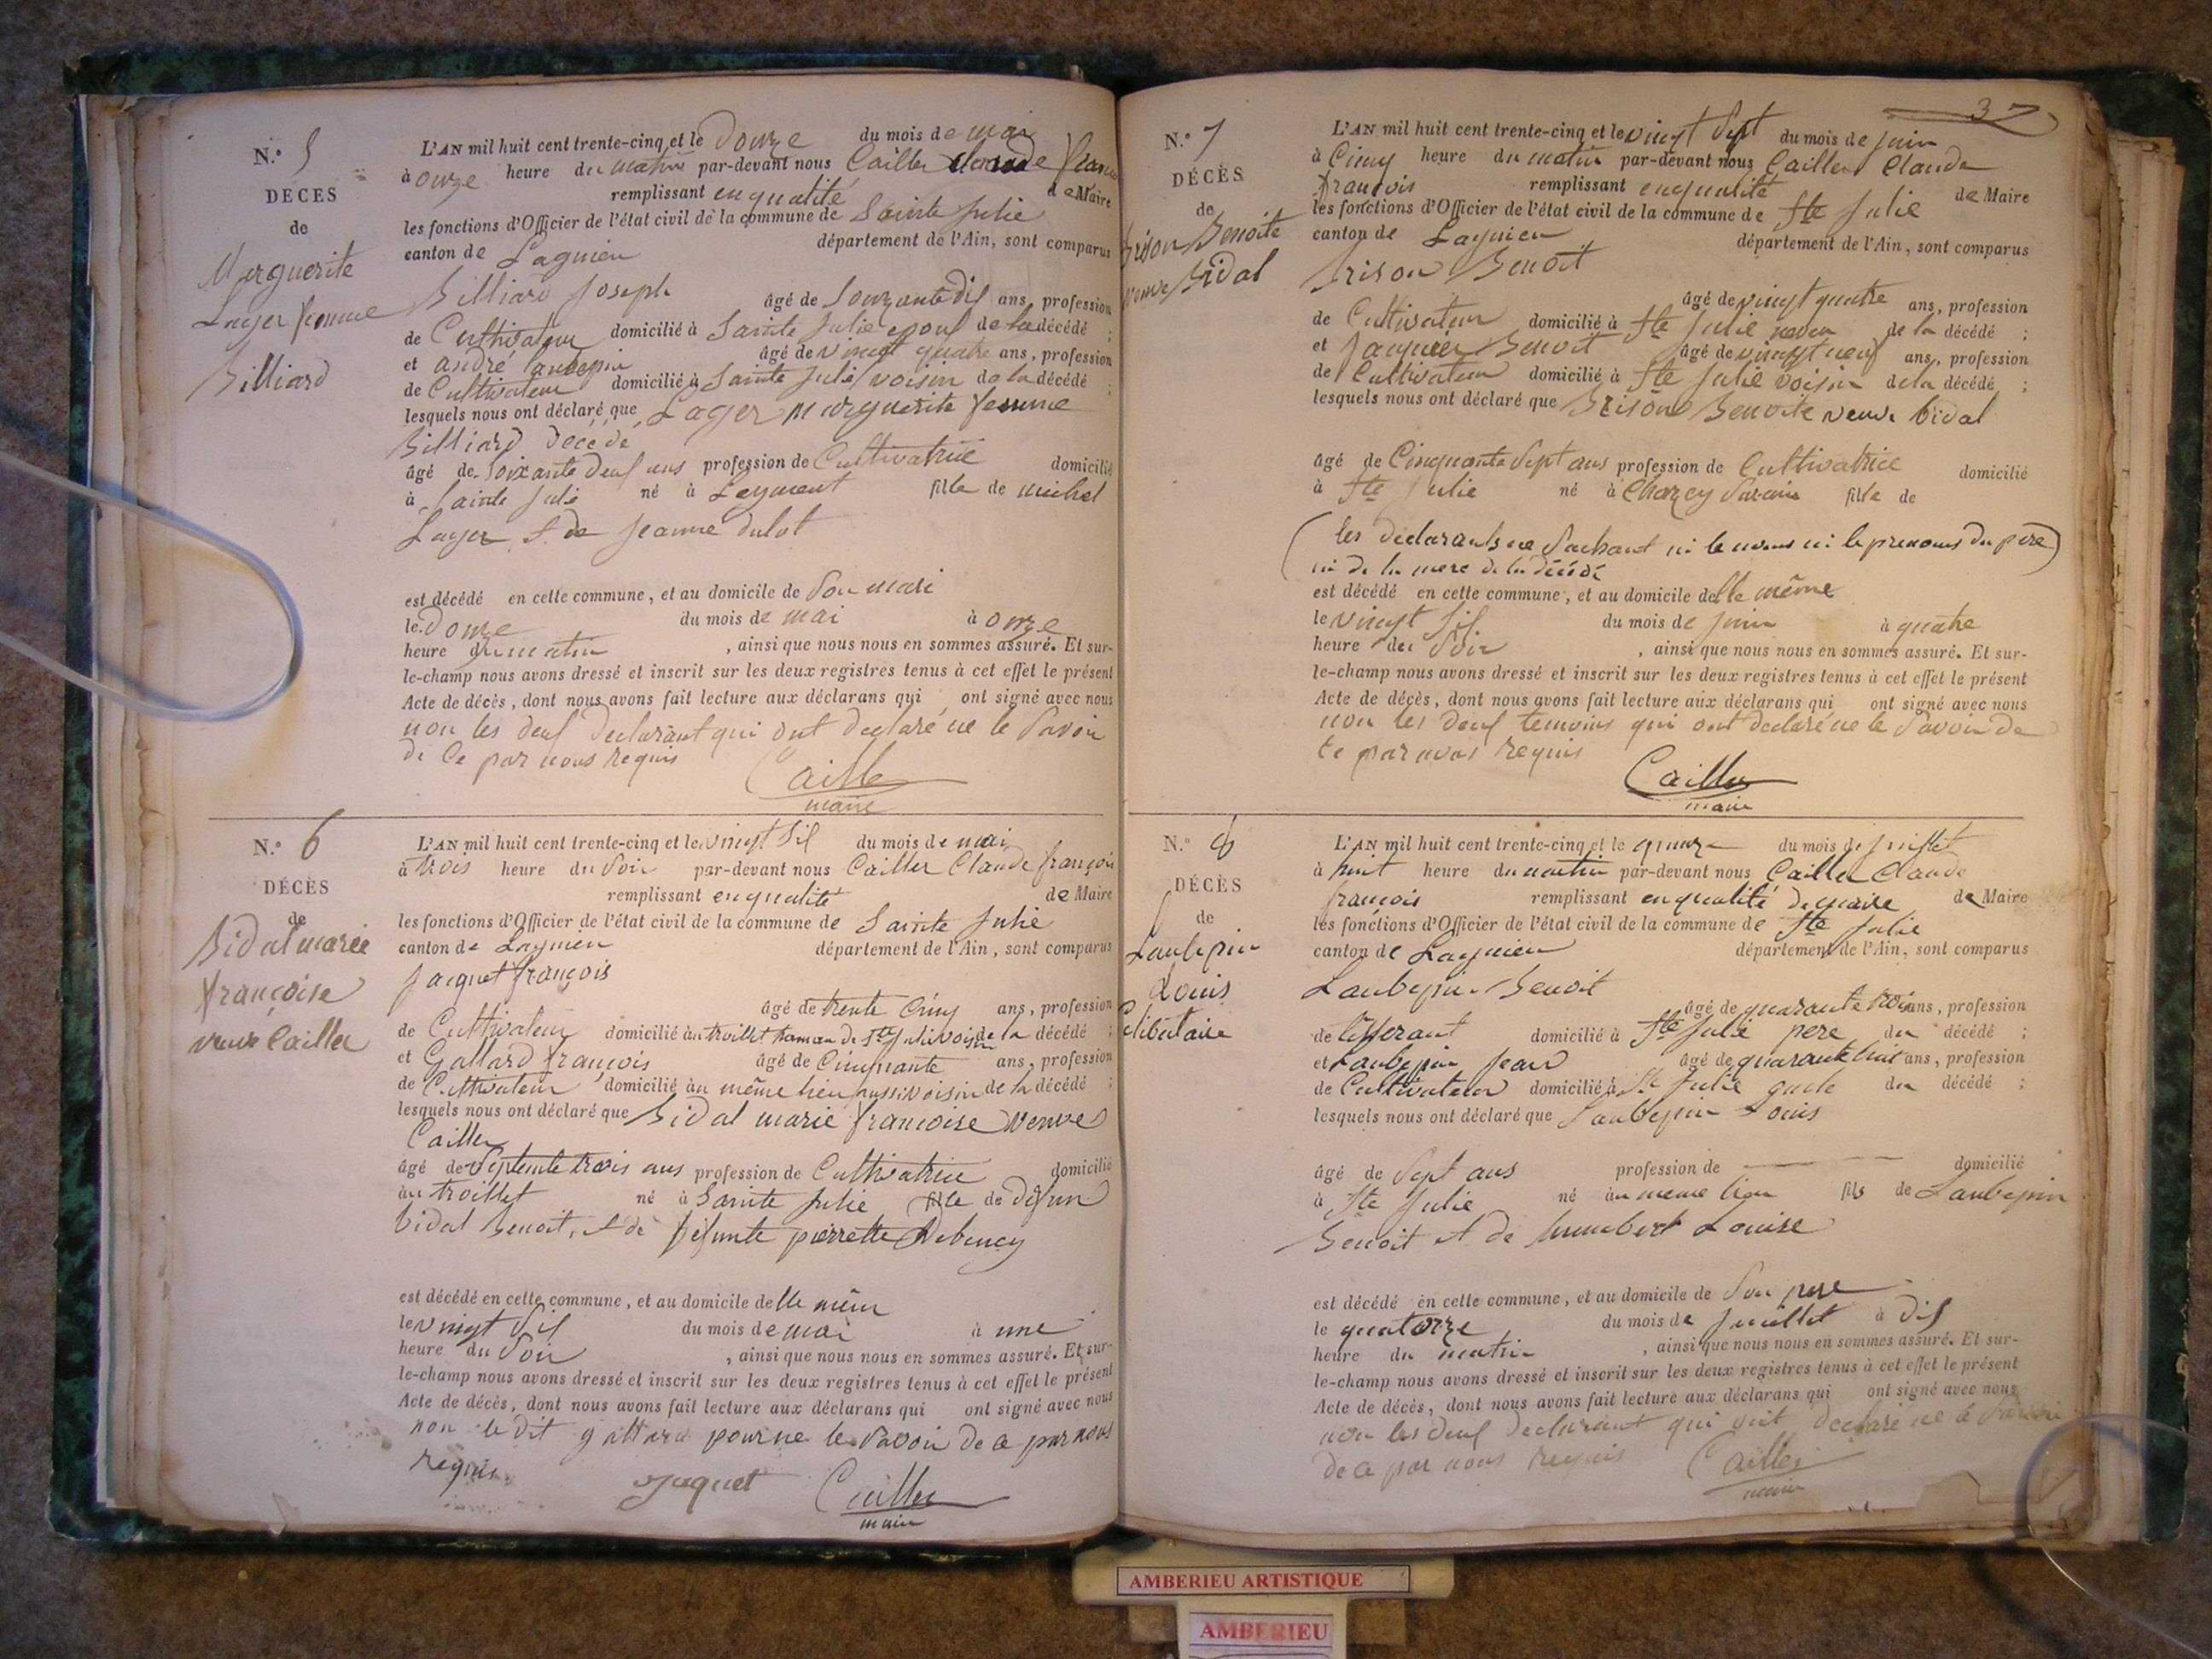 N.º 5
DÉCÈS
de
Marguerite
Layer femme
Billiard
L'AN mil huit cent trente-cinq et le Douze du mois de mai
à onze heure du matin par-devant nous Cailler Claude
remplissant en qualité de Maire
les fonctions d'Officier de l'état civil de la commune de Sainte Julie
canton de Lagnieu département de l'Ain, sont comparus
Billiard Joseph âgé de ans, profession
de Cultivateur domicilié à Sainte Julie epoux de la décédé ;
et andré âgé de vingt quatre ans, profession
de Cultivateur domicilié à Sainte Julie voisin de la décédé ;
lesquels nous ont déclaré que Layer Marguerite femme
Billiard décédé
âgé de Soixante Deux ans profession de Cultivatrice domicilié
à Sainte Julie né à Leyment fille de michel
Layer & de Jeanne dulot
est décédé en cette commune, et au domicile de Son mari
le Douze du mois de mai à onze
heure du matin , ainsi que nous nous en sommes assuré. Et sur-
le-champ nous avons dressé et inscrit sur les deux registres tenus à cet effet le présent
Acte de décès, dont nous avons fait lecture aux déclarans qui ont signé avec nous
non les deux Declarant qui ont declaré ne le Savoir
de Ce par nous requis
Cailler
maire
N.º 6
DÉCÈS
de
Bidal marie
françoise
veuve Cailler
L'AN mil huit cent trente-cinq et le vingt Six du mois de mai
à trois heure du Soir par-devant nous Cailler Claude françois
remplissant en qualité de Maire
les fonctions d'Officier de l'état civil de la commune de Sainte Julie
canton de Lagnieu département de l'Ain, sont comparus
Jacquet françois
âgé de trente Cinq ans, profession
de Cultivateur domicilié au troillet hameau de Ste Julie voisin de la décédé ;
et Gallard françois âgé de Cinquante ans, profession
de Cultivateur domicilié au même lieu aussi voisin de la décédé ;
lesquels nous ont déclaré que Bidal marie francoise Veuve
Cailler
âgé de Septente trois ans profession de Cultivatrice domicilié
au troillet né à Sainte Julie fille de défun
Bidal Benoit, & de défunte pierrette
est décédé en cette commune, et au domicile delle même
le vingt Six du mois de mai à une
heure du Soir , ainsi que nous nous en sommes assuré. Et sur-
le-champ nous avons dressé et inscrit sur les deux registres tenus à cet effet le présent
Acte de décès, dont nous avons fait lecture aux déclarans qui ont signé avec nous
non le Dit gallard pour ne le Savoir de ce par nous
requis
Jaquet Cailler
maire
37
N.º 7
DÉCÈS
de
Brison Benoite
veuve Bidal
L'AN mil huit cent trente-cinq et le vingt Sept du mois de juin
à Cinq heure du matin par-devant nous Cailler Claude
françois remplissant en qualité de Maire
les fonctions d'Officier de l'état civil de la commune de Ste Julie
canton de Lagnieu département de l'Ain, sont comparus
Brison Benoit
âgé de vingt quatre ans, profession
de Cultivateur domicilié à Ste Julie neveu de la décédé ;
et Jacquier Benoit âgé de vingt neuf ans, profession
de Cultivateur domicilié à Ste Julie voisin de la décédé ;
lesquels nous ont déclaré que Brison Benoite veuve bidal
âgé de Cinquante Sept ans profession de Cultivatrice domicilié
à Ste Julie né à Chazey fille de
(les déclarants ne Sachant ni le noms ni le prenoms du père)
ni de la mere de la décédé
est décédé en cette commune, et au domicile delle même
le vingt Six du mois de juin à quatre
heure du Soir , ainsi que nous nous en sommes assuré. Et sur-
le-champ nous avons dressé et inscrit sur les deux registres tenus à cet effet le présent
Acte de décès, dont nous avons fait lecture aux déclarans qui ont signé avec nous
non les deux temoins qui ont declaré ne le Savoir de
ce par nous requis
Cailler
maire
N.º 8
DÉCÈS
de
Laubepin
Louis
Célibataire
L'AN mil huit cent trente-cinq et le quinze du mois de juillet
à huit heure du matin par-devant nous Cailler Claude
françois remplissant en qualité de maire de Maire
les fonctions d'Officier de l'état civil de la commune de Ste Julie
canton de Lagnieu département de l'Ain, sont comparus
Laubepin Benoit
âgé de quarante trois ans, profession
de tisserant domicilié à Ste Julie pere du décédé ;
et Laubepin Jean âgé de quarante huit ans, profession
de Cultivateur domicilié à Ste Julie du décédé ;
lesquels nous ont déclaré que Laubepin Louis
âgé de Sept ans profession de domicilié
à Ste Julie né au meme lieu fils de Laubepin
Benoit & de humbert Louise
est décédé en cette commune, et au domicile de Son pere
le quatorze du mois de Juillet à dix
heure du matin , ainsi que nous nous en sommes assuré. Et sur-
le-champ nous avons dressé et inscrit sur les deux registres tenus à cet effet le présent
Acte de décès, dont nous avons fait lecture aux déclarans qui ont signé avec nous
non les deux declarant qui ont declaré ne le Savoir
de ce par nous requis Cailler
maire
AMBERIEU ARTISTIQUE
AMBERIEU